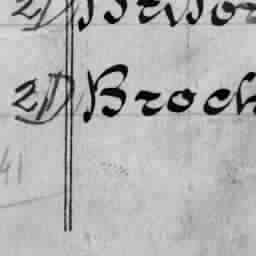 2D
2D Broch
41